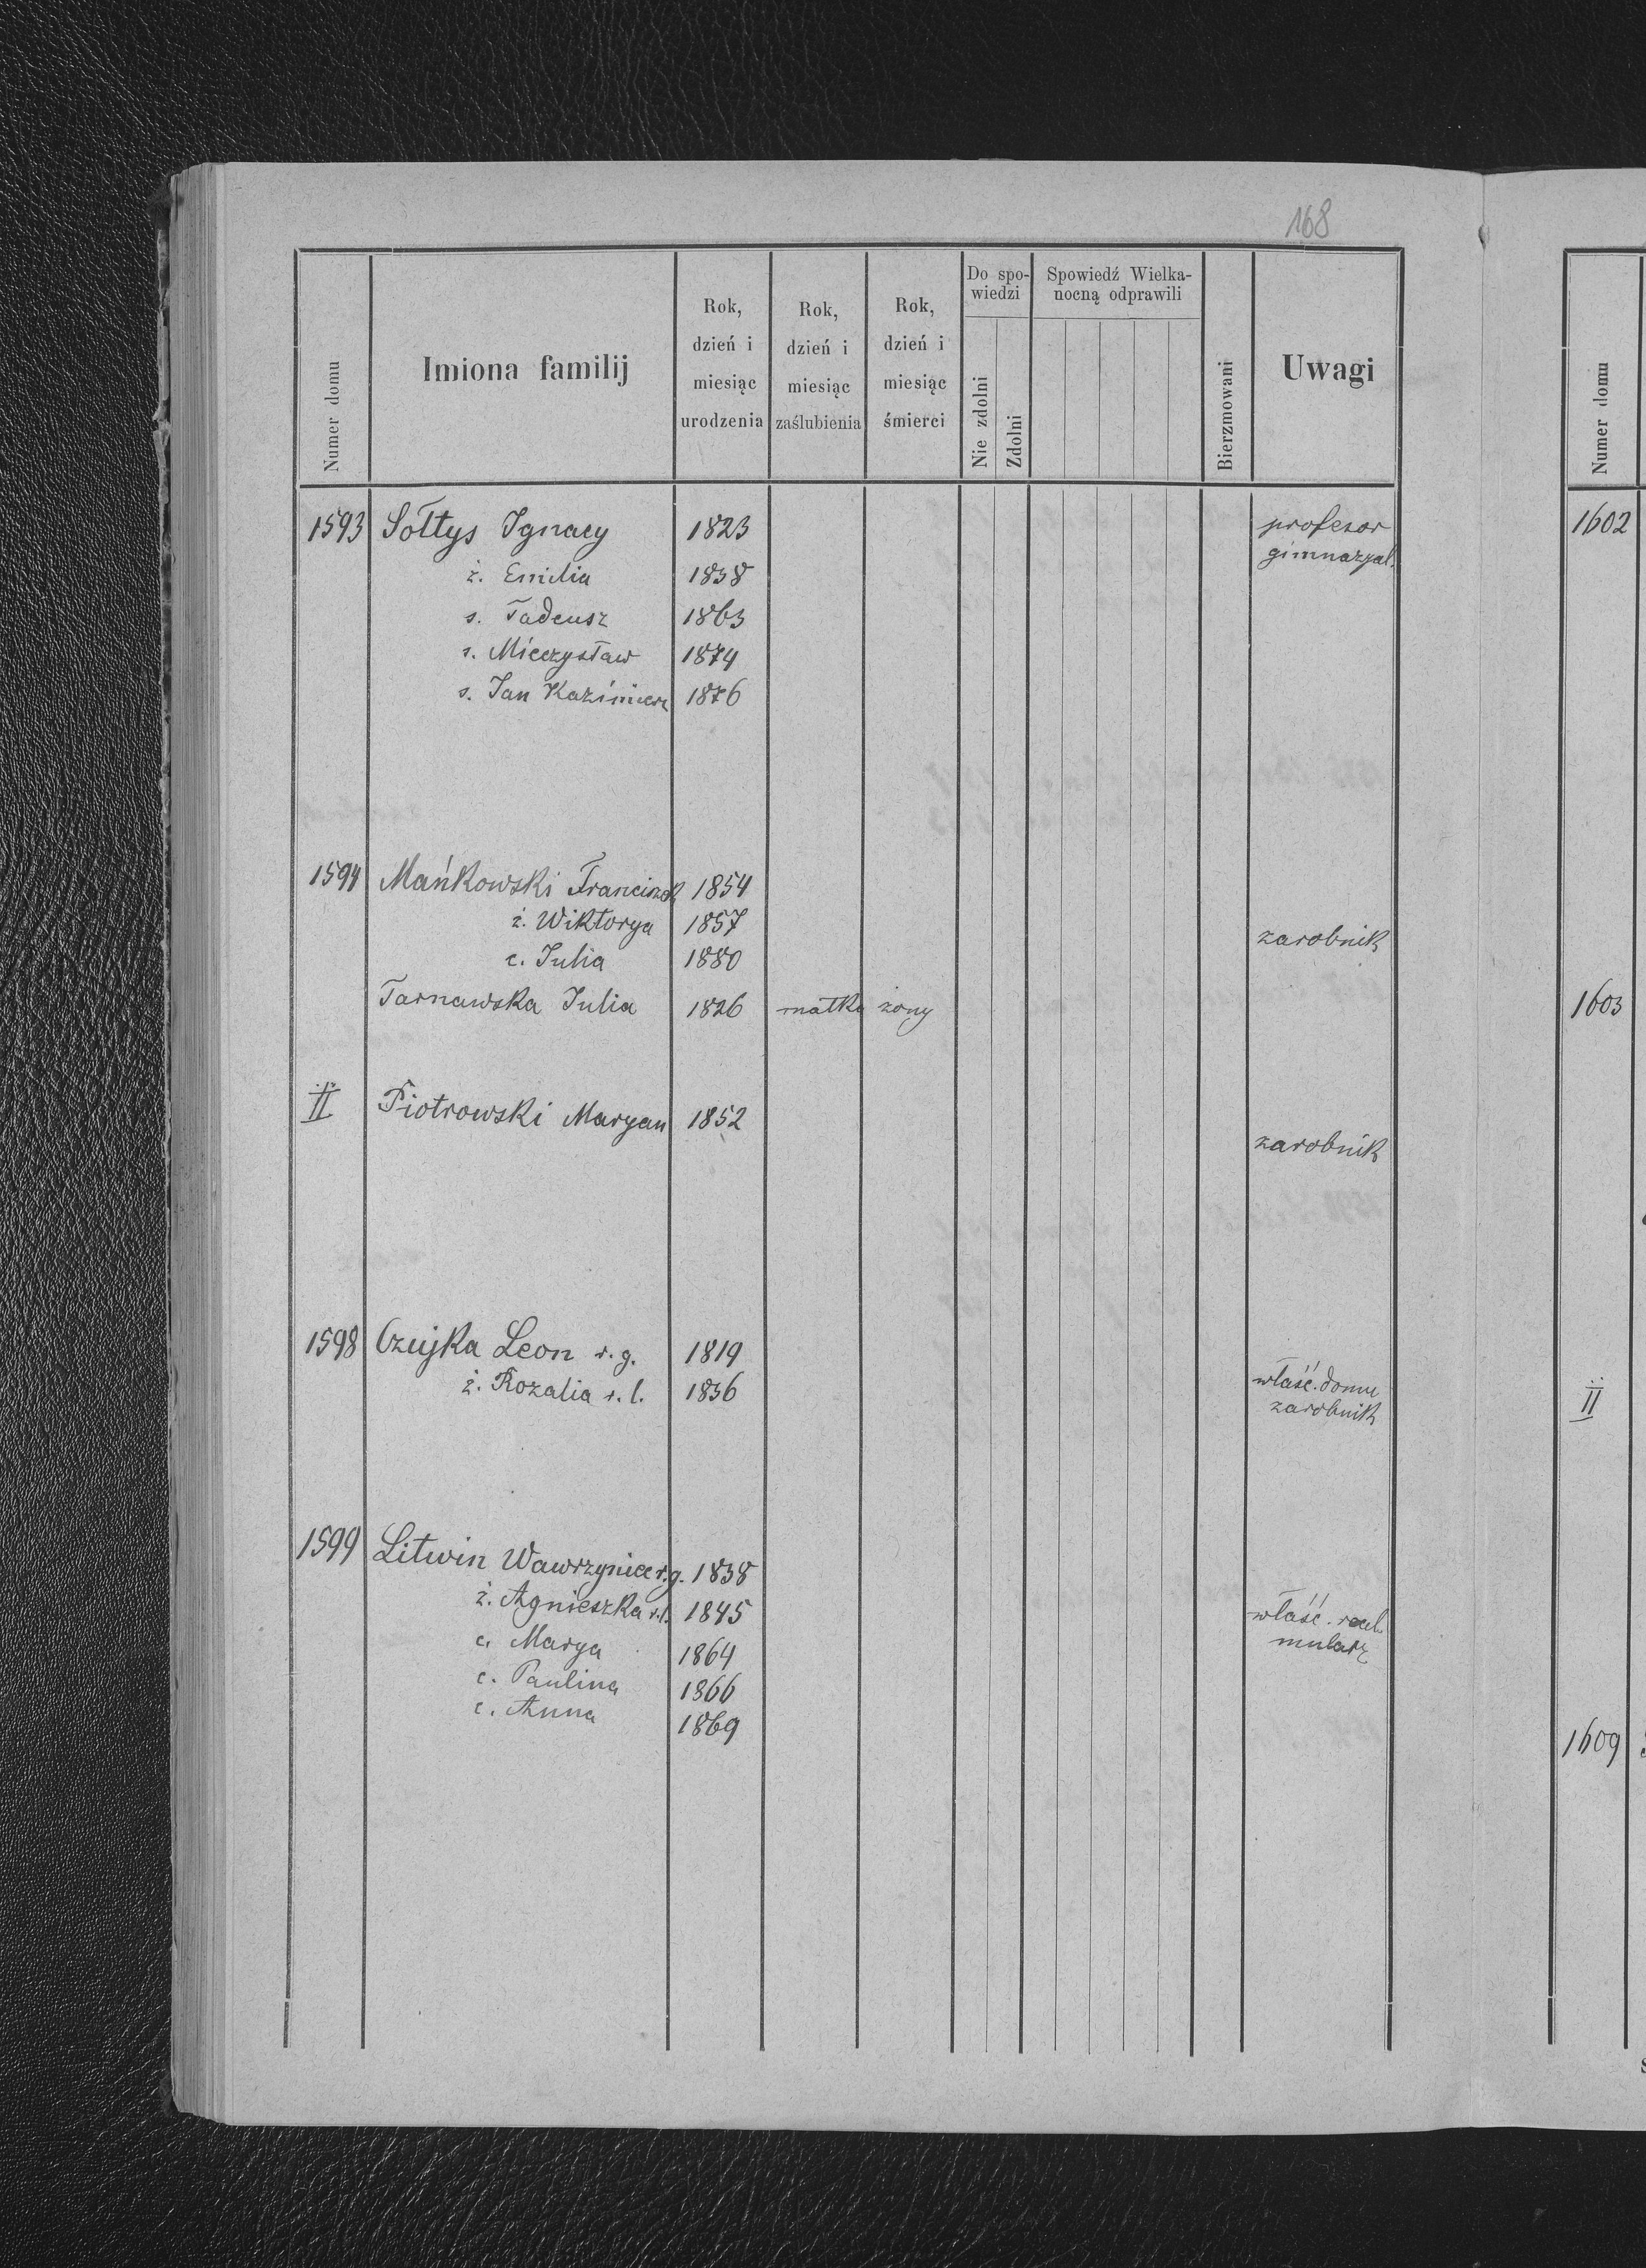 168
Numer domu
Imiona familij
Rok, dzień i miesiąc urodzenia
Rok, dzień i miesiąc zaślubienia
Rok, dzień i miesiąc śmierci
Do spo-
wiedzi
Nie zdolni
Zdolni
Spowiedź Wielka-
nocną odprawili
Bierzmowani
Uwagi
Numer domu
1593 Sołtys Ignacy 1823 profesor
gimnazyal.
ż. Emilia 1838
s. Tadeusz 1863
s. Mieczysław 1874
s. Jan Kaźimierz 1876
1594 Mańkowski Franciszek 1854
ż. Wiktorya 1857 zarobnik
c. Julia 1880
Tarnawska Julia 1826 matka żony
II Piotrowski Maryan 1852
zarobnik
1598 Czujka Leon r. g. 1819
ż. Rozalia r. l. 1836 właść. domu
zarobnik
1599 Litwin Wawrzyniec r. g. 1838
ż. Agnieszka r. l. 1845 właść. real.
c. Marya 1864 mularz
c. Paulina 1866
c. Anna 1869
1602
1603
II
1609